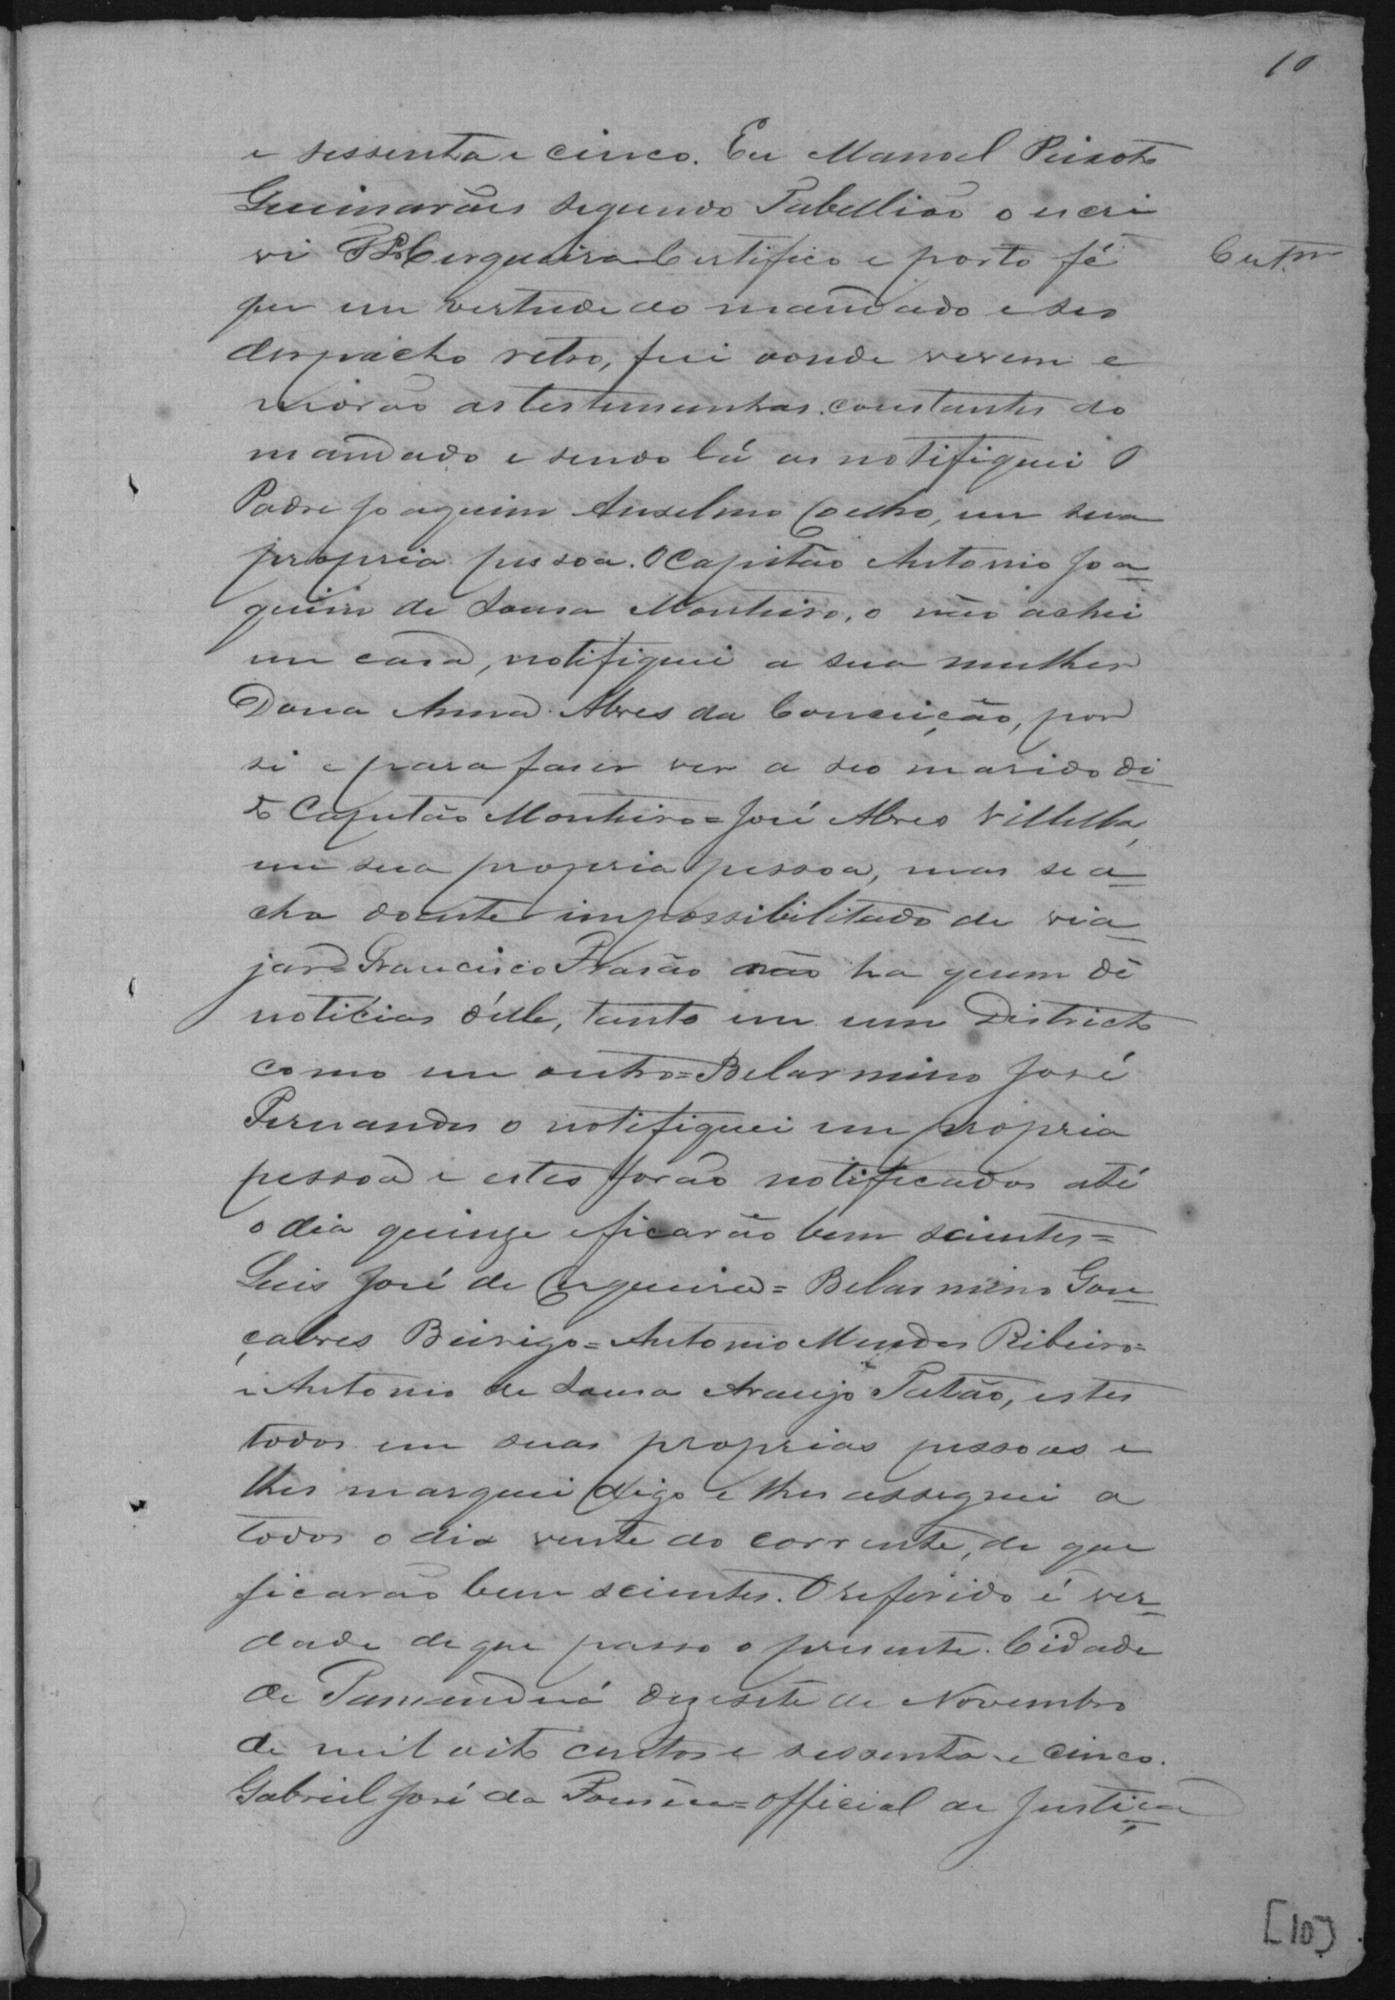 10
e sessenta e cinco. Eu Manoel Peixoto
Guimarães segundo Tabellião o escri
vi Cerqueira Certifico e porto fé
Cert.am
que em vertude do mandado e seo
despacho retro, fui aonde vivem e
morão as testemunhas constantes do
mandado e sendo lá as notifiquei O
Padre Joaquim Anselmo Coelho, em sua
propria pessoa. O Capitão Antonio Joa
quim de Sousa Monteiro, o não achei
em casa, notifiquei a sua mulher
Dona Anna Alves da Conceição, por
si e para faser ver a seo marido di
to Capitão Monteiro = José Alves Villella,
em sua propria pessoa, mas se a
cha doente impossibilitado de via
jar = Francisco não ha quem dê
notícias d'élle, tanto em um Districto
como em outro = Belarmino José
Fernandes o notifiquei em propria
pessoa e estes forão notificados até
o dia quinze e ficarão bem scientes =
Luis José de Cerqueira = Belarmino Gon
çalves = Antonio Mendes Ribeiro =
e Antonio de Sousa Araujo, estes
todos em suas proprias pessoas e
lhes marquei digo e lhes assignei a
todos o dia vente do corrente, de que
ficarão bem scientes. O referido é ver
dade de que passo o presente. Cidade
de Tamanduá desesete de Novembro
de mil oito centos e sessenta e cinco.
Gabriel José da Fonseca = Official de Justiça
[10]